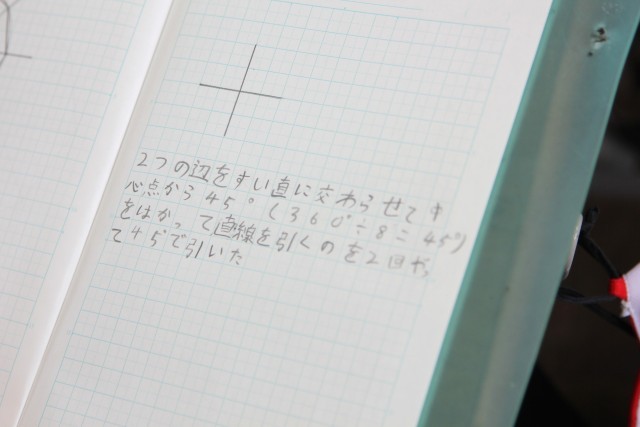 2つの辺をすい直に交わらせて中
心点から45°(360°÷8=45°)
をはかって直線を引くのを2回か
て45°で引いた